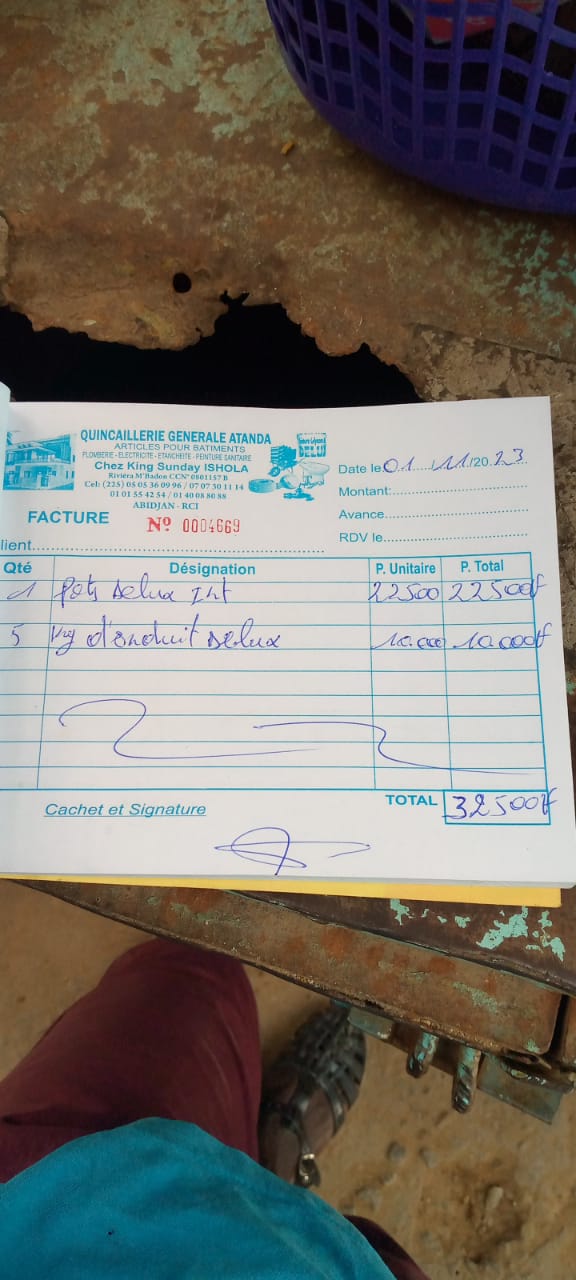 QUINCAILLERIE GENERALE ATANDA
ARTICLES POUR BATIMENTS
PLOMBERIE - ELECTRICITE - ETANCHEITE - PEINTURE SANITAIRE
Chez King Sunday ISHOLA
Riviéra M'Badon CCN° 0801157B
Cel: (225) 05 05 36 09 96 / 07 07 30 11 14
01 01 55 42 54 / 01 40 08 80 88
ABIDJAN - RCI
FACTURE N° 0004669
Date le 01/11/2023
Montant:
Avance
RDV le
lient
Qté Désignation P. Unitaire P. Total
1 Pots Delux Int 22500 22500f
5 d'enduit Delux 10.000 10.000f
TOTAL 32500f
Cachet et Signature